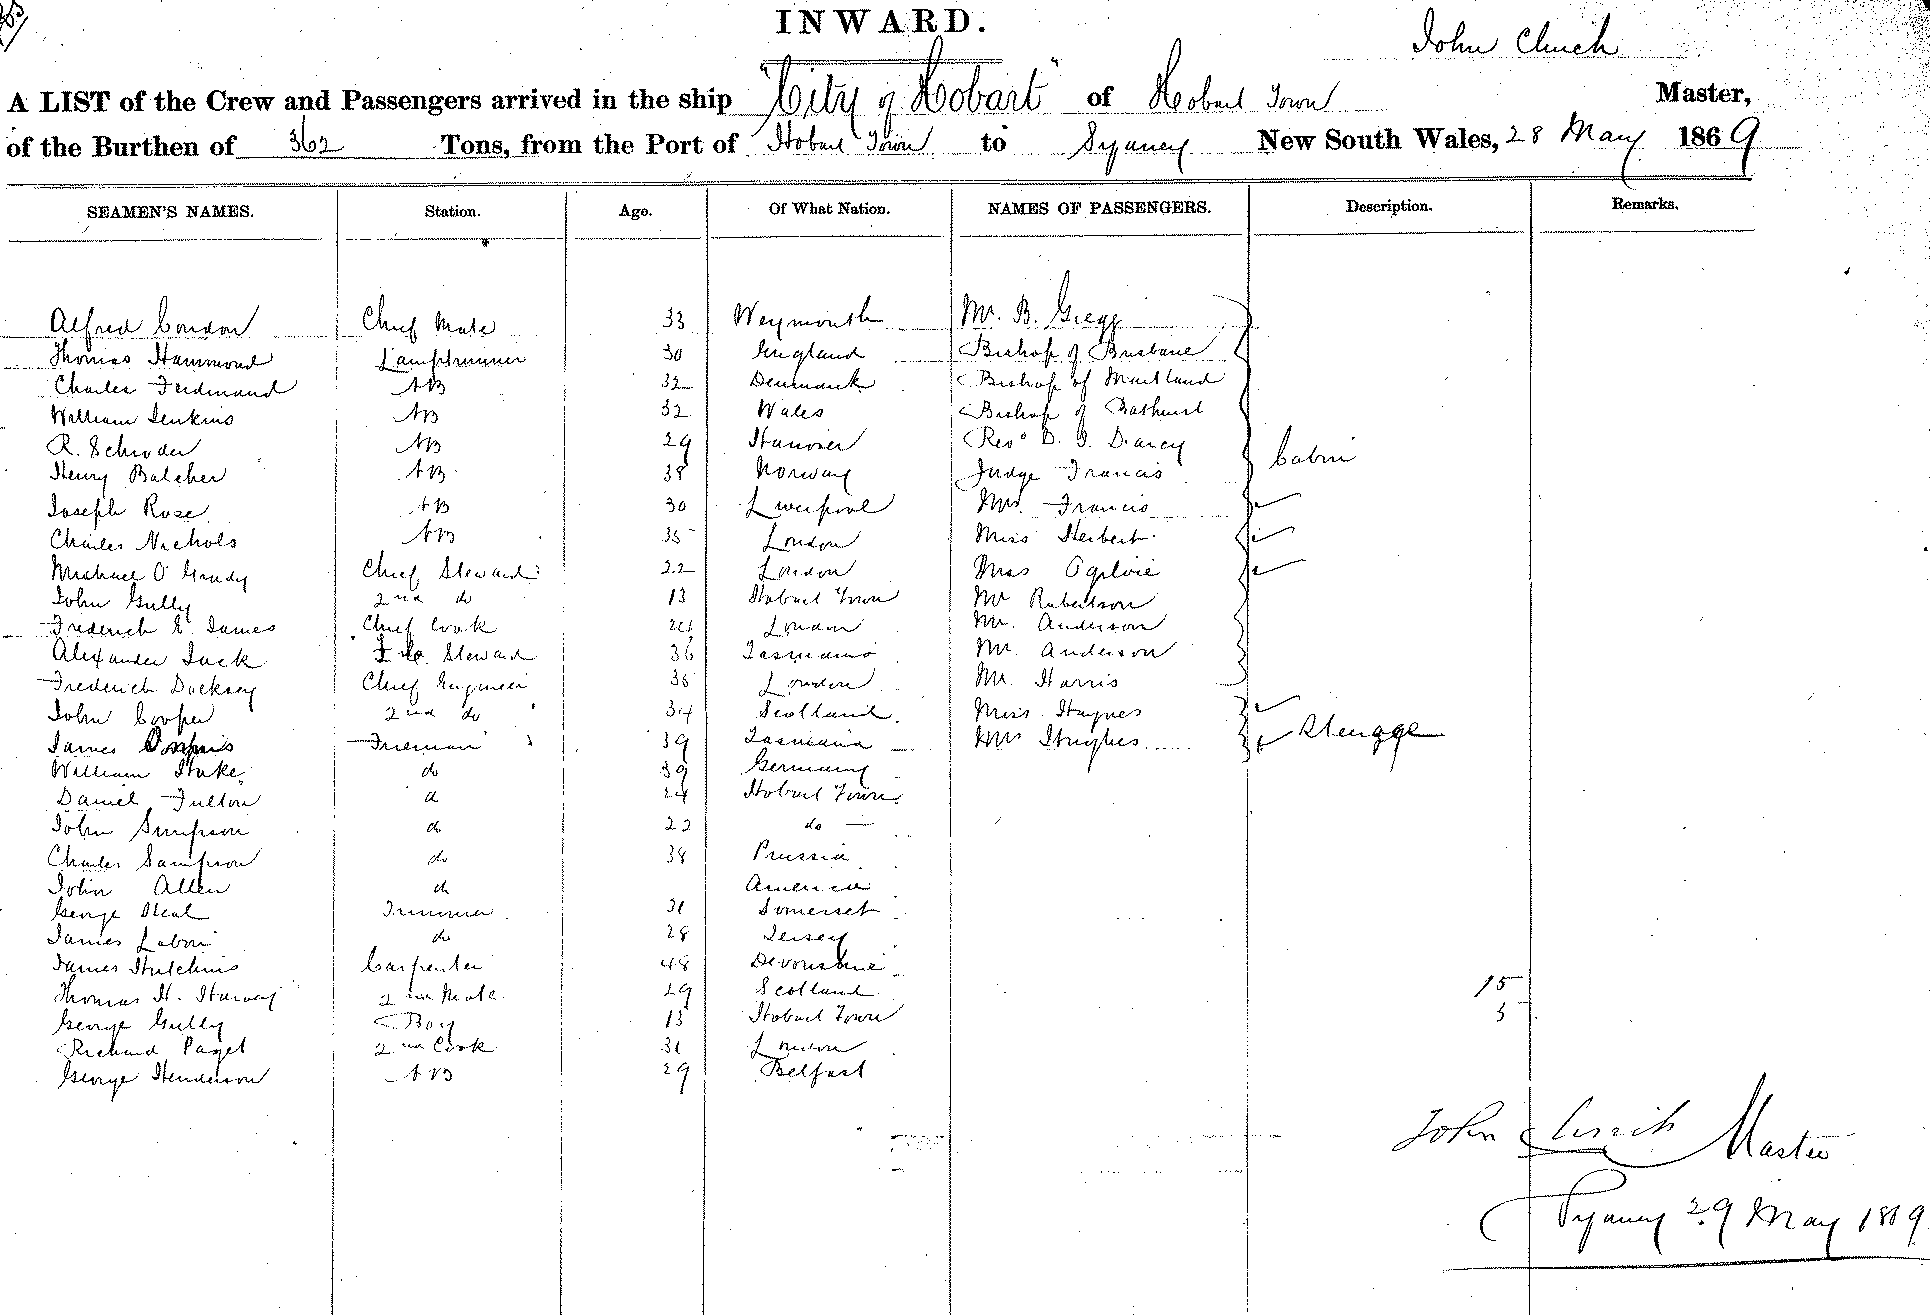 INWARD.
John Clinch
A LIST of the Crew and Passengers arrived in the ship "City of Hobart" of Hobart Town Master,
of the Burthen of 362 Tons, from the Port of Hobart Town to Sydney New South Wales, 28 May 1869
SEAMEN'S NAMES. Station. Age. Of What Nation. NAMES OF PASSENGERS. Description. Remarks.
Alfred Condon Chief Mate 33 Weymouth Mr. B. Gregg
Thomas Hammond Lamptrimmer 30 England Bishop of Brisbane
Charles Ferdinand AB 32 Denmark Bishop of Maitland
William Jenkins AB 32 Wales Bishop of Bathurst
R. Schroder AB 29 Hanover Revd D. Darcy
Henry Balcher AB 38 Norway Judge Francis Cabin
Joseph Rose AB 30 Liverpool Mrs Francis
Charles Nichols AB 35 London Miss Herbert
Michael O'Grady Chief Steward 22 London Miss Ogilvie
John Gully 2nd do 13 Hobart Town Mr Robertson
Frederick E. James Chief Cook London Mr. Anderson
Alexander Jack Steward 36 Tasmania Mr. Anderson
Frederick Docksey Chief Engineer 35 London Mr. Harris
John Cooper 2nd do 34 Scotland Miss Haynes
James Fireman 39 Tasmania Mrs Hughes Steerage
William Hake do 39 Germany
Daniel Fulton do 24 Hobart Town
John Simpson do 22 do
Charles Sampson do 38 Prussia
John Allen do America
George Neal Trimmer 31 Somerset
James do 28 Jersey
James Hutchins Carpenter 48 Devonshire
Thomas H. Harvey 2nd Mate 29 Scotland 15
George Gully Boy 15 Hobart Town 5
Richard Paget 2nd Cook 31 London
George Henderson AB 29 Belfast
John Clinch Master
Sydney 29 May 1869